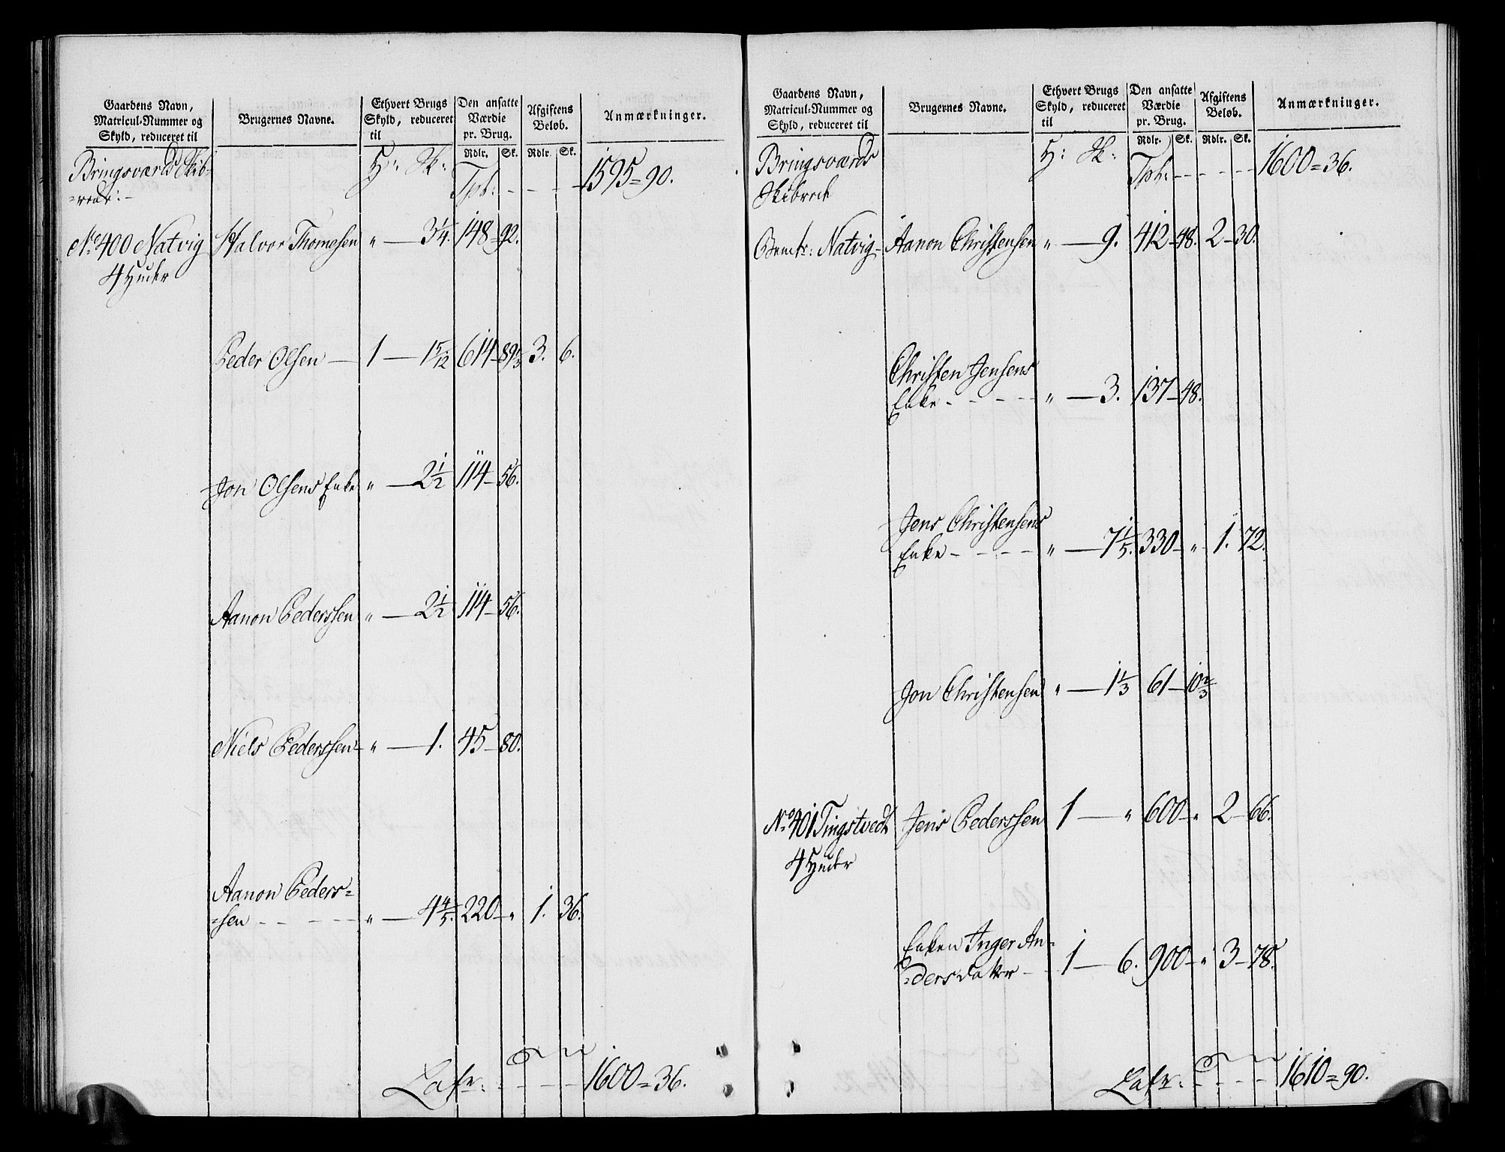 Gaardens Navn,
Matricul-Nummer og
Skyld, reduceret til
Brugernes Navne.
Ethvert Brugs
Skyld, reduceret
til
Den ansatte
Værdie
pr. Brug.
Afgiftens
Beløb.
Anmærkninger.
Rdlr. Sk. Rdlr. Sk.
Bringsværds Skib-
=rede:- H: Sk: Tpt: - - - - 1595=90.
No 400 Natvig Halvor Thomesen " — 3 1/4. 148-92.
4 Huder
Peder Olsen — 1 — 1 5/12 614-89 2/3 3. 6.
Jon Olsens Enke " — 2 1/2 114-56.
Aanon Pederssen " — 2 1/2 114-56.
Niels Pederssen - " — 1. 45-80.
Aanon Peders=
=sen - - - - " — 4 4/5. 220-" 1. 36.
Lats: - - - - 1600=36.
Gaardens Navn,
Matricul-Nummer og
Skyld, reduceret til
Brugernes Navne.
Ethvert Brugs
Skyld, reduceret
til
Den ansatte
Værdie
pr. Brug.
Afgiftens
Beløb.
Anmærkninger.
Rdlr. Sk. Rdlr. Sk.
Bringsværds H: Sk: Tpt: - - - - 1600=36.
Skibrede
Bemte: Natvig- Aanon Christensen " — 9. 412-48. 2-30.
Christen Jensens
Enke - - - - " — 3. 137-48.
Jens Christensens
Enke - - - - " — 7 1/5. 330-" 1. 72.
Jon Christensen " — 1 1/3 61-10 2/3
No 401 Tingstvedt Jens Pederssen 1 — " 600-" 2-66.
4 Huder
Enken Inger An-
=dersdatter - 1 — 6. 900-" 3-78.
Lats: - - - - 1610=90.